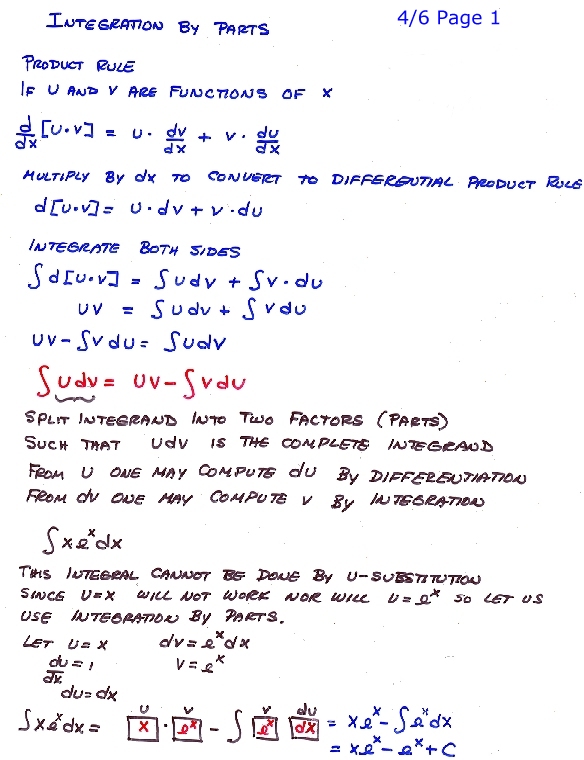 INTEGRATION BY PARTS
4/6 Page 1
PRODUCT RULE
IF U AND V ARE FUNCTIONS OF X
d/dx [u·v] = u · dv/dx + v · du/dx
MULTIPLY BY dx TO CONVERT TO DIFFERENTIAL PRODUCT RULE
d[u·v] = u·dv + v·du
INTEGRATE BOTH SIDES
∫d[u·v] = ∫udv + ∫v·du
uv = ∫udv + ∫vdu
uv - ∫vdu = ∫udv
∫udv = uv - ∫vdu
SPLIT INTEGRAND INTO TWO FACTORS (PARTS)
SUCH THAT udv IS THE COMPLETE INTEGRAND
FROM U ONE MAY COMPUTE du BY DIFFERENTIATION
FROM dv ONE MAY COMPUTE v BY INTEGRATION
∫xeˣdx
THIS INTEGRAL CANNOT BE DONE BY U-SUBSTITUTION
SINCE U=X WILL NOT WORK NOR WILL U=eˣ SO LET US
USE INTEGRATION BY PARTS.
LET U=X dv=eˣdx
du/dx = 1 v=eˣ
du=dx
u v v du
∫xeˣdx = x · eˣ - ∫ eˣ dx = xeˣ - ∫eˣdx
= xeˣ - eˣ + C